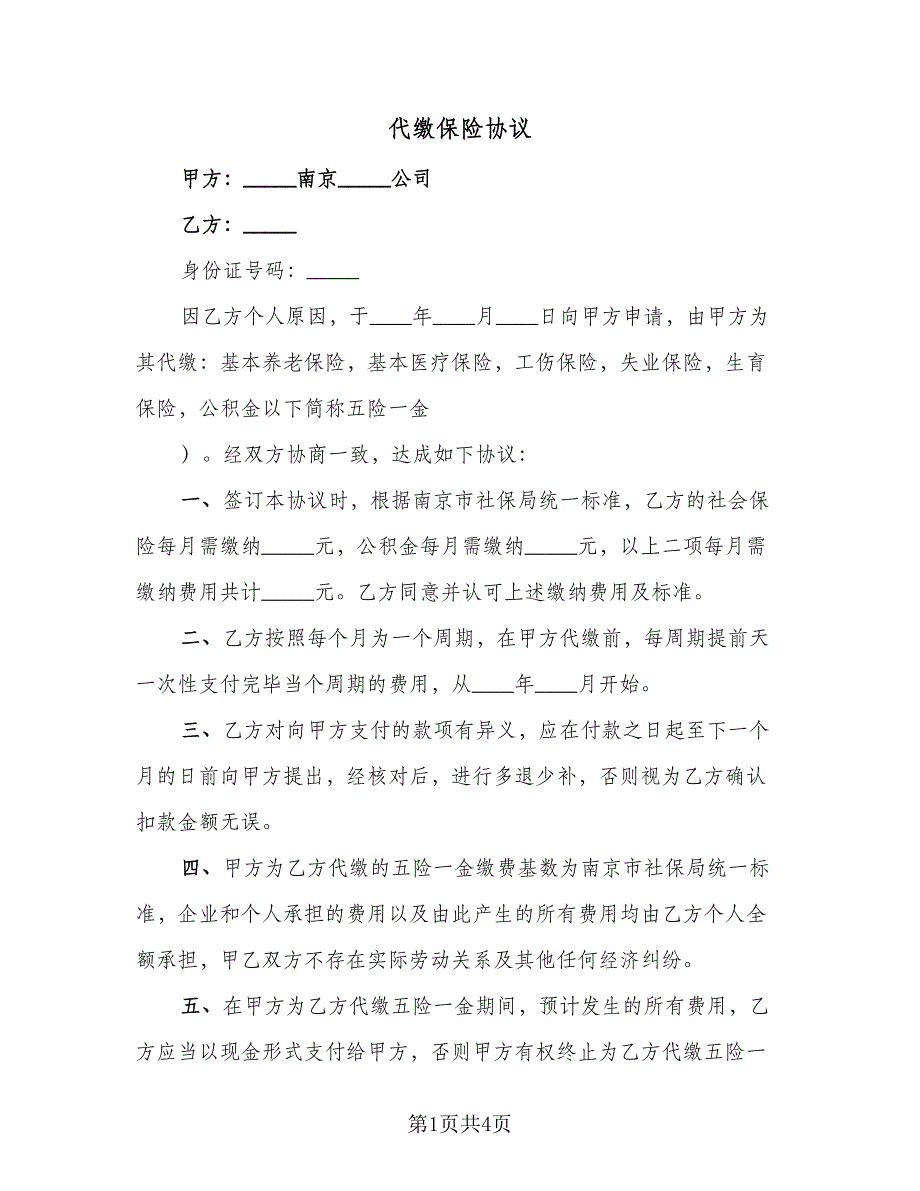 代缴保险协议
甲方：_____南京_____公司
乙方：_____
身份证号码：_____
因乙方个人原因，于____年____月____日向甲方申请，由甲方为
其代缴：基本养老保险，基本医疗保险，工伤保险，失业保险，生育
保险，公积金以下简称五险一金
）。经双方协商一致，达成如下协议：
一、签订本协议时，根据南京市社保局统一标准，乙方的社会保
险每月需缴纳_____元，公积金每月需缴纳_____元，以上二项每月需
缴纳费用共计_____元。乙方同意并认可上述缴纳费用及标准。
二、乙方按照每个月为一个周期，在甲方代缴前，每周期提前天
一次性支付完毕当个周期的费用，从____年____月开始。
三、乙方对向甲方支付的款项有异义，应在付款之日起至下一个
月的日前向甲方提出，经核对后，进行多退少补，否则视为乙方确认
扣款金额无误。
四、甲方为乙方代缴的五险一金缴费基数为南京市社保局统一标
准，企业和个人承担的费用以及由此产生的所有费用均由乙方个人全
额承担，甲乙双方不存在实际劳动关系及其他任何经济纠纷。
五、在甲方为乙方代缴五险一金期间，预计发生的所有费用，乙
方应当以现金形式支付给甲方，否则甲方有权终止为乙方代缴五险一
第1页共4页